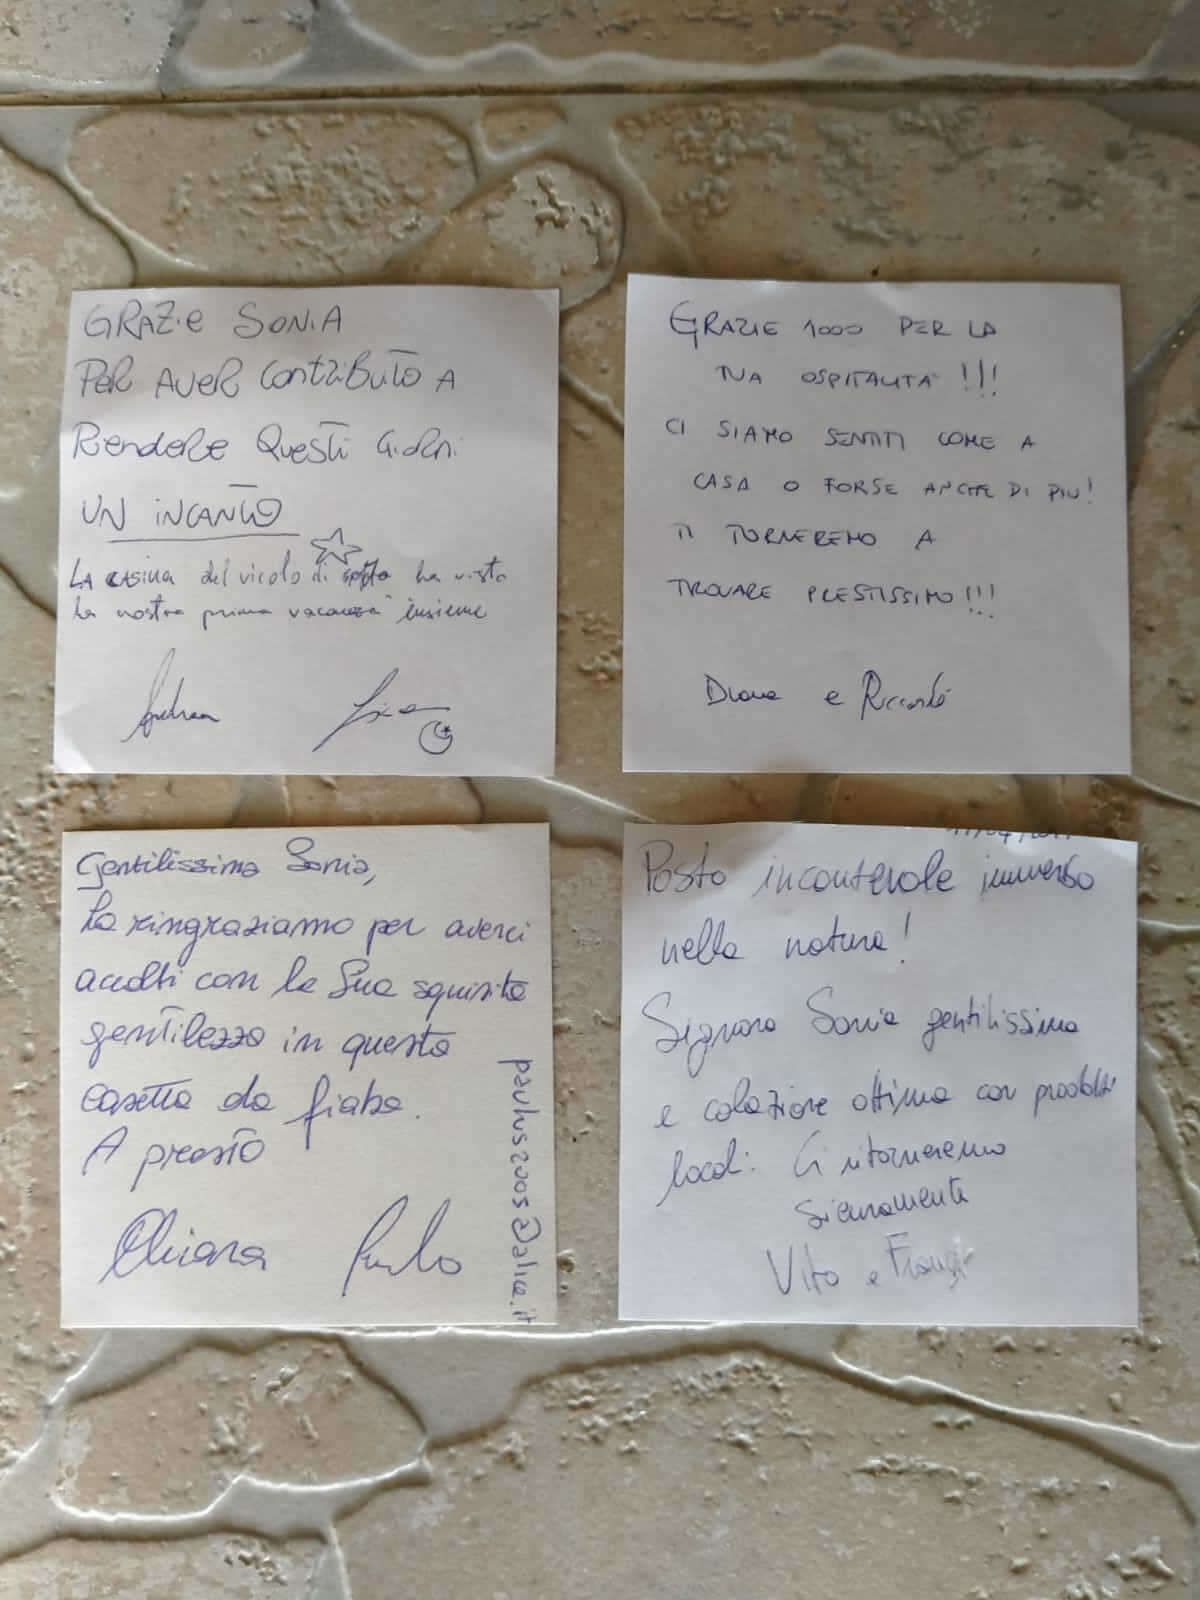 GRAZIE SONIA
PER AVER CONTRIBUITO A
RENDERE QUESTI GIORNI
UN INCANTO
LA CASINA del vicolo di sotto ha visto
la nostra prima vacanza insieme
Andrea
GRAZIE 1000 PER LA
TUA OSPITALITÀ !!!
CI SIAMO SENTITI COME A
CASA O FORSE ANCHE DI PIÙ!
TI TORNEREMO A
TROVARE PRESTISSIMO!!!
Diana e Riccardo
Gentilissima Sonia,
La ringraziamo per averci
accolti con la Sua squisita
gentilezza in questa
casetta da fiaba.
A presto
Chiara Paolo
paulus2005@alice.it
Posto incantevole immerso
nella natura!
Signora Sonia gentilissima
e colazione ottima con prodotti
locali. Ci ritorneremo
sicuramente
Vito e